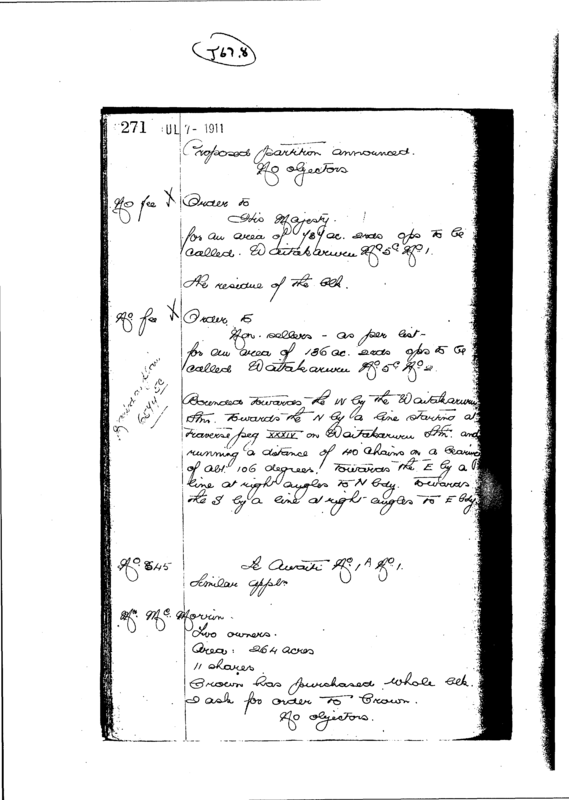 J67.8
271 JUL 7- 1911
Proposed partition announced.
No objectors
No fee X Order to
His Majesty.
for an area of 789 ac. ends ops to be
called. Waitakaruru No 5C No 1.
the residue of the blk.
No fee X Order to
Non. sellers - as per list -
for an area of 136 ac. ends ops to be
called Waitakaruru No 5C No 2.
Bounded towards the W by the Waitakaruru
Stm. Towards the N by a line starting at
traverse peg XXXIV on Waitakaruru Stm. and
running a distance of 40 chains on a bearing
of abt. 106 degrees. Towards the E by a
line at right angles to N bdy. Towards
the S by a line at right angles to E bdy.
No 845 Te Awaiti No 1A No 1.
Similar appln
Mr. McMorrin.
Two owners.
Area: 264 acres
11 shares
Crown has purchased whole blk.
I ask for order to Crown.
No objectors.